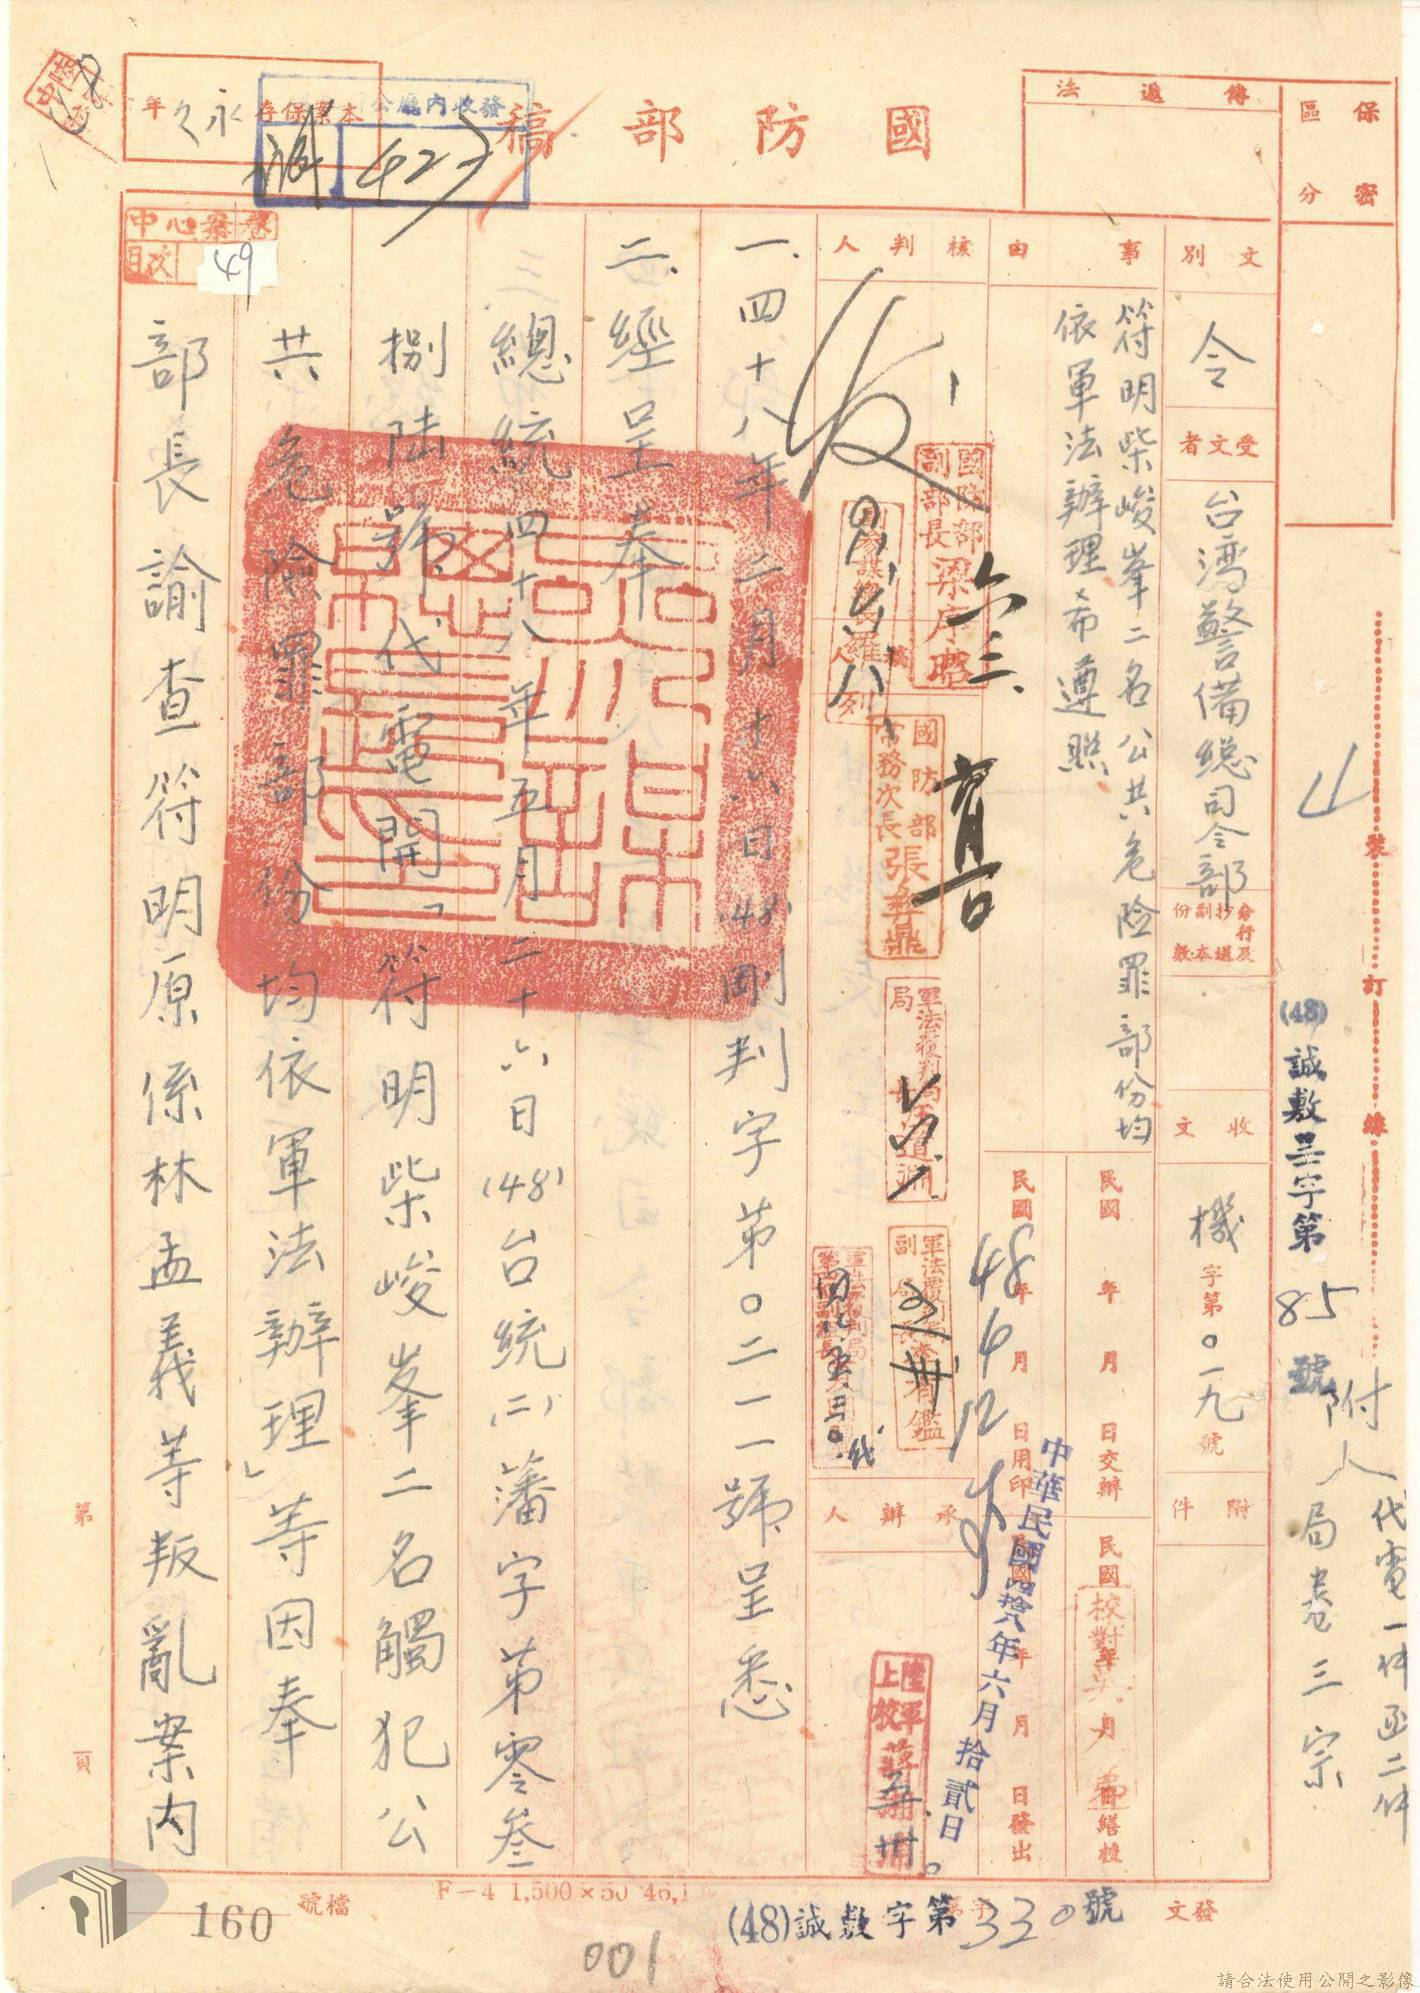 國防部稿
保密
區分
傳遞法
本案保存永久年
發收內廳公
423
中心案卷
目次
49
文別
令
受文者
台灣警備總司令部
分行及抄送副本份數
收文
機字第〇一九號
附件
事由
符明柴峻峯二名公共危險罪部份均
依軍法辦理希遵照
民國 年 月 日交辦
民國 年 月 日繕校
民國48年6月12日用印
民國 年 月 日發出
中華民國肆拾捌年六月拾貳日
校對
核判人
國防部副部長梁序昭
六三
國防部常務次長張彝鼎
軍法覆判局
軍法覆判局副局長
承辦人
陸軍上校
一.四十八年二月十六日(48)剛判字第〇二一一號呈悉
二.經呈奉
總統四十八年五月二十六日(48)台統(二)藩字第零叁
捌陸號代電開「符明柴峻峯二名觸犯公
共危險罪部份均依軍法辦理」等因奉
部長諭查符明原係林孟義等叛亂案內
裝訂線
(48)誠敷呈字第85號
附
代電一件函二件
局卷三宗
第 頁
發文
(48)誠敷字第330號
F-4 1,500×50 46,1
檔號
160
001
請合法使用公開之影像